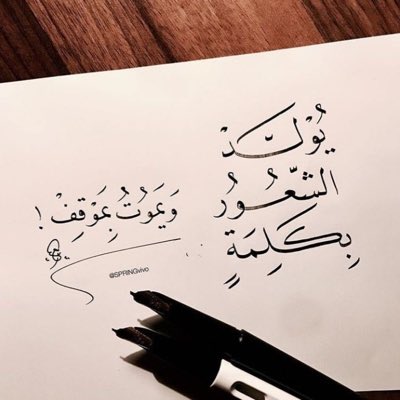 يُوْلَــدْ
الشّعُــورُ
بِكَلِمَةٍ
وَيَمَوتُ بِمَوْقِفْ !
@SPRINGvivo